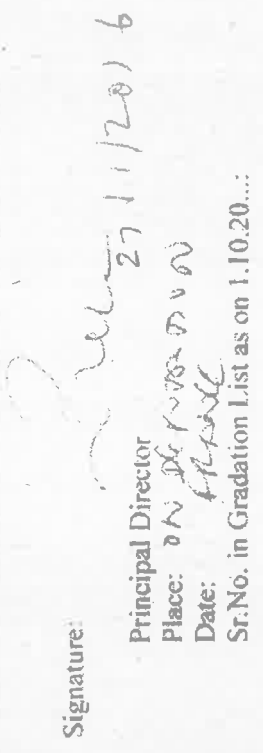 Signature:
27/11/2016
Principal Director
Place: ON DEPUTATION
Date:
Sr.No. in Gradation List as on 1.10.20...: